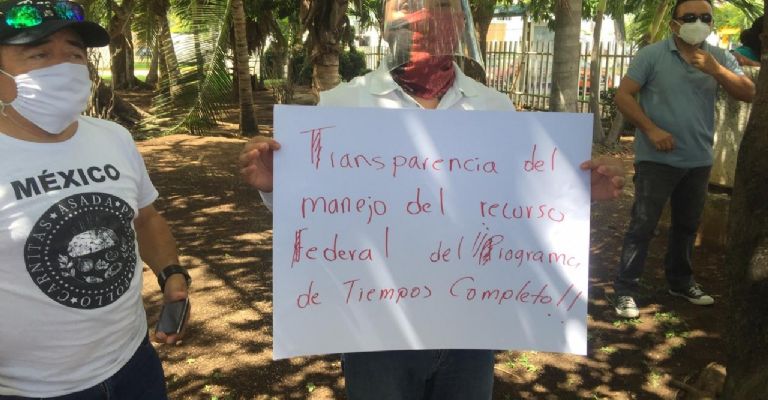 MÉXICO
ASADA
CARNITAS
POLLO
Transparencia del
manejo del recurso
Federal del "Programa
de Tiempos Completo!!